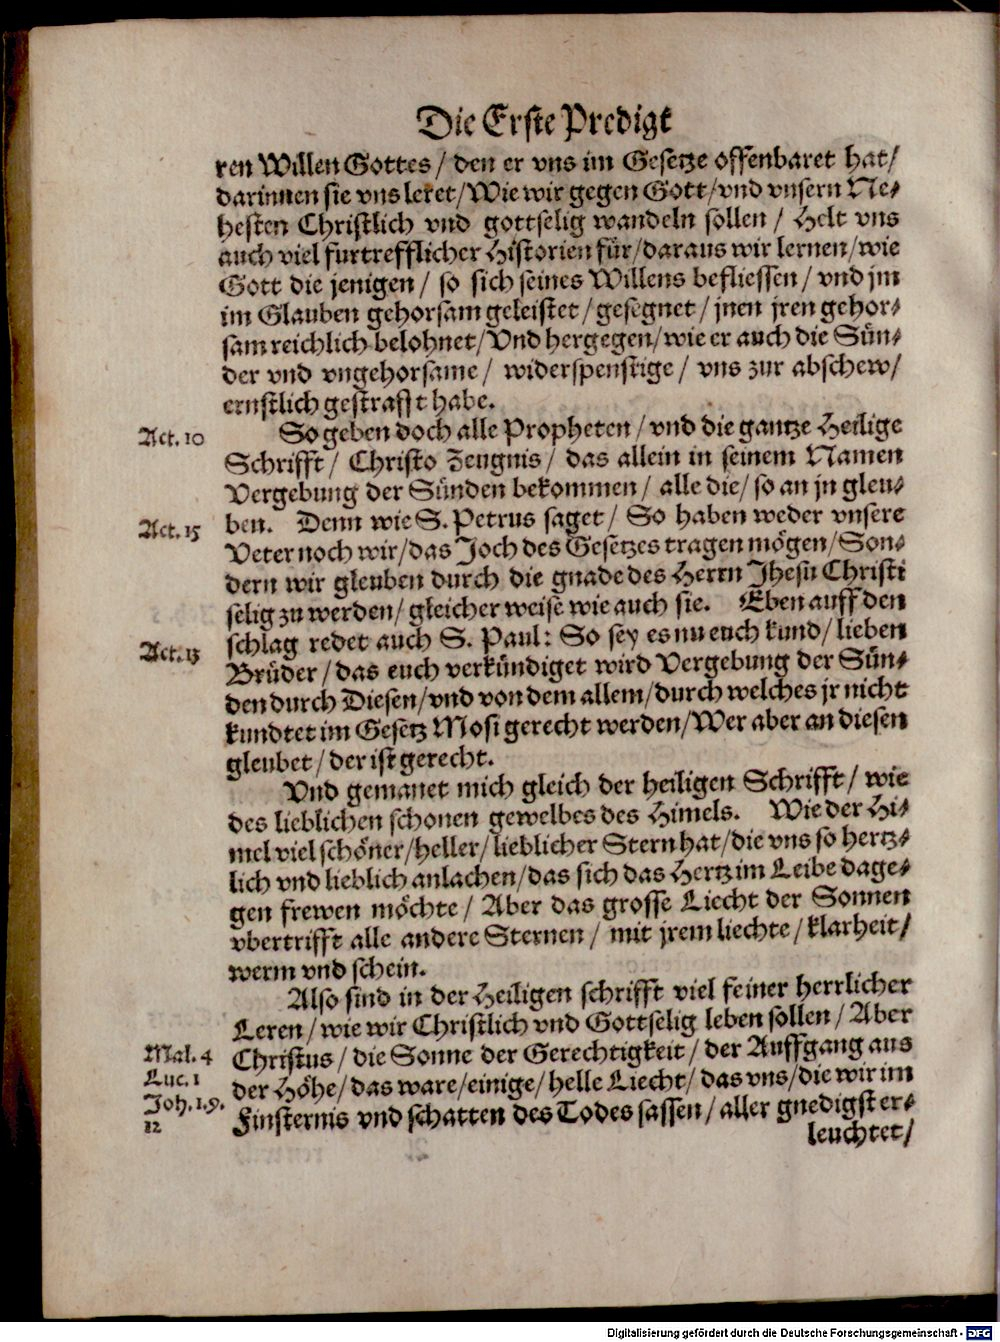 Die Erste Predigt
ren Willen Gottes / den er vns im Gesetze offenbaret hat /
darinnen sie vns leret / Wie wir gegen Gott / vnd vnsern Ne-
hesten Christlich vnd gottselig wandeln sollen / Helt vns
auch viel furtrefflicher Historien für / daraus wir lernen / wie
Gott die jenigen / so sich seines Willens befliessen / vnd jm
im Glauben gehorsam geleistet / gesegnet / jnen jren gehor-
sam reichlich belohnet / Vnd hergegen / wie er auch die Sün-
der vnd vngehorsame / widerspenstige / vns zur abschew /
ernstlich gestrafft habe.
Act. 10
So geben doch alle Propheten / vnd die gantze Heilige
Schrifft / Christo Zeugnis / das allein in seinem Namen
Vergebung der Sünden bekommen / alle die / so an jn gleu-
Act. 15
ben. Denn wie S. Petrus saget / So haben weder vnsere
Veter noch wir / das Joch des Gesetzes tragen mögen / Son-
dern wir gleuben durch die gnade des Herrn Jhesu Christi
selig zu werden / gleicher weise wie auch sie. Eben auff den
Act. 13
schlag redet auch S. Paul: So sey es nu euch kund / lieben
Brüder / das euch verkündiget wird Vergebung der Sün-
den durch Diesen / vnd von dem allem / durch welches jr nicht
kundtet im Gesetz Mosi gerecht werden / Wer aber an diesen
gleubet / der ist gerecht.
Vnd gemanet mich gleich der heiligen Schrifft / wie
des lieblichen schonen gewelbes des Himels. Wie der Hi-
mel viel schöner / heller / lieblicher Stern hat / die vns so hertz-
lich vnd lieblich anlachen / das sich das Hertz im Leibe dage-
gen frewen möchte / Aber das grosse Liecht der Sonnen
vbertrifft alle andere Sternen / mit jrem liechte / klarheit /
werm vnd schein.
Also sind in der Heiligen schrifft viel feiner herrlicher
Leren / wie wir Christlich vnd Gottselig leben sollen / Aber
Mal. 4
Christus / die Sonne der Gerechtigkeit / der Auffgang aus
Luc. 1
der Höhe / das ware / einige / helle Liecht / das vns / die wir im
Joh. 1. 9.
12
Finsternis vnd schatten des Todes sassen / aller gnedigst er-
leuchtet /
Digitalisierung gefördert durch die Deutsche Forschungsgemeinschaft - DFG